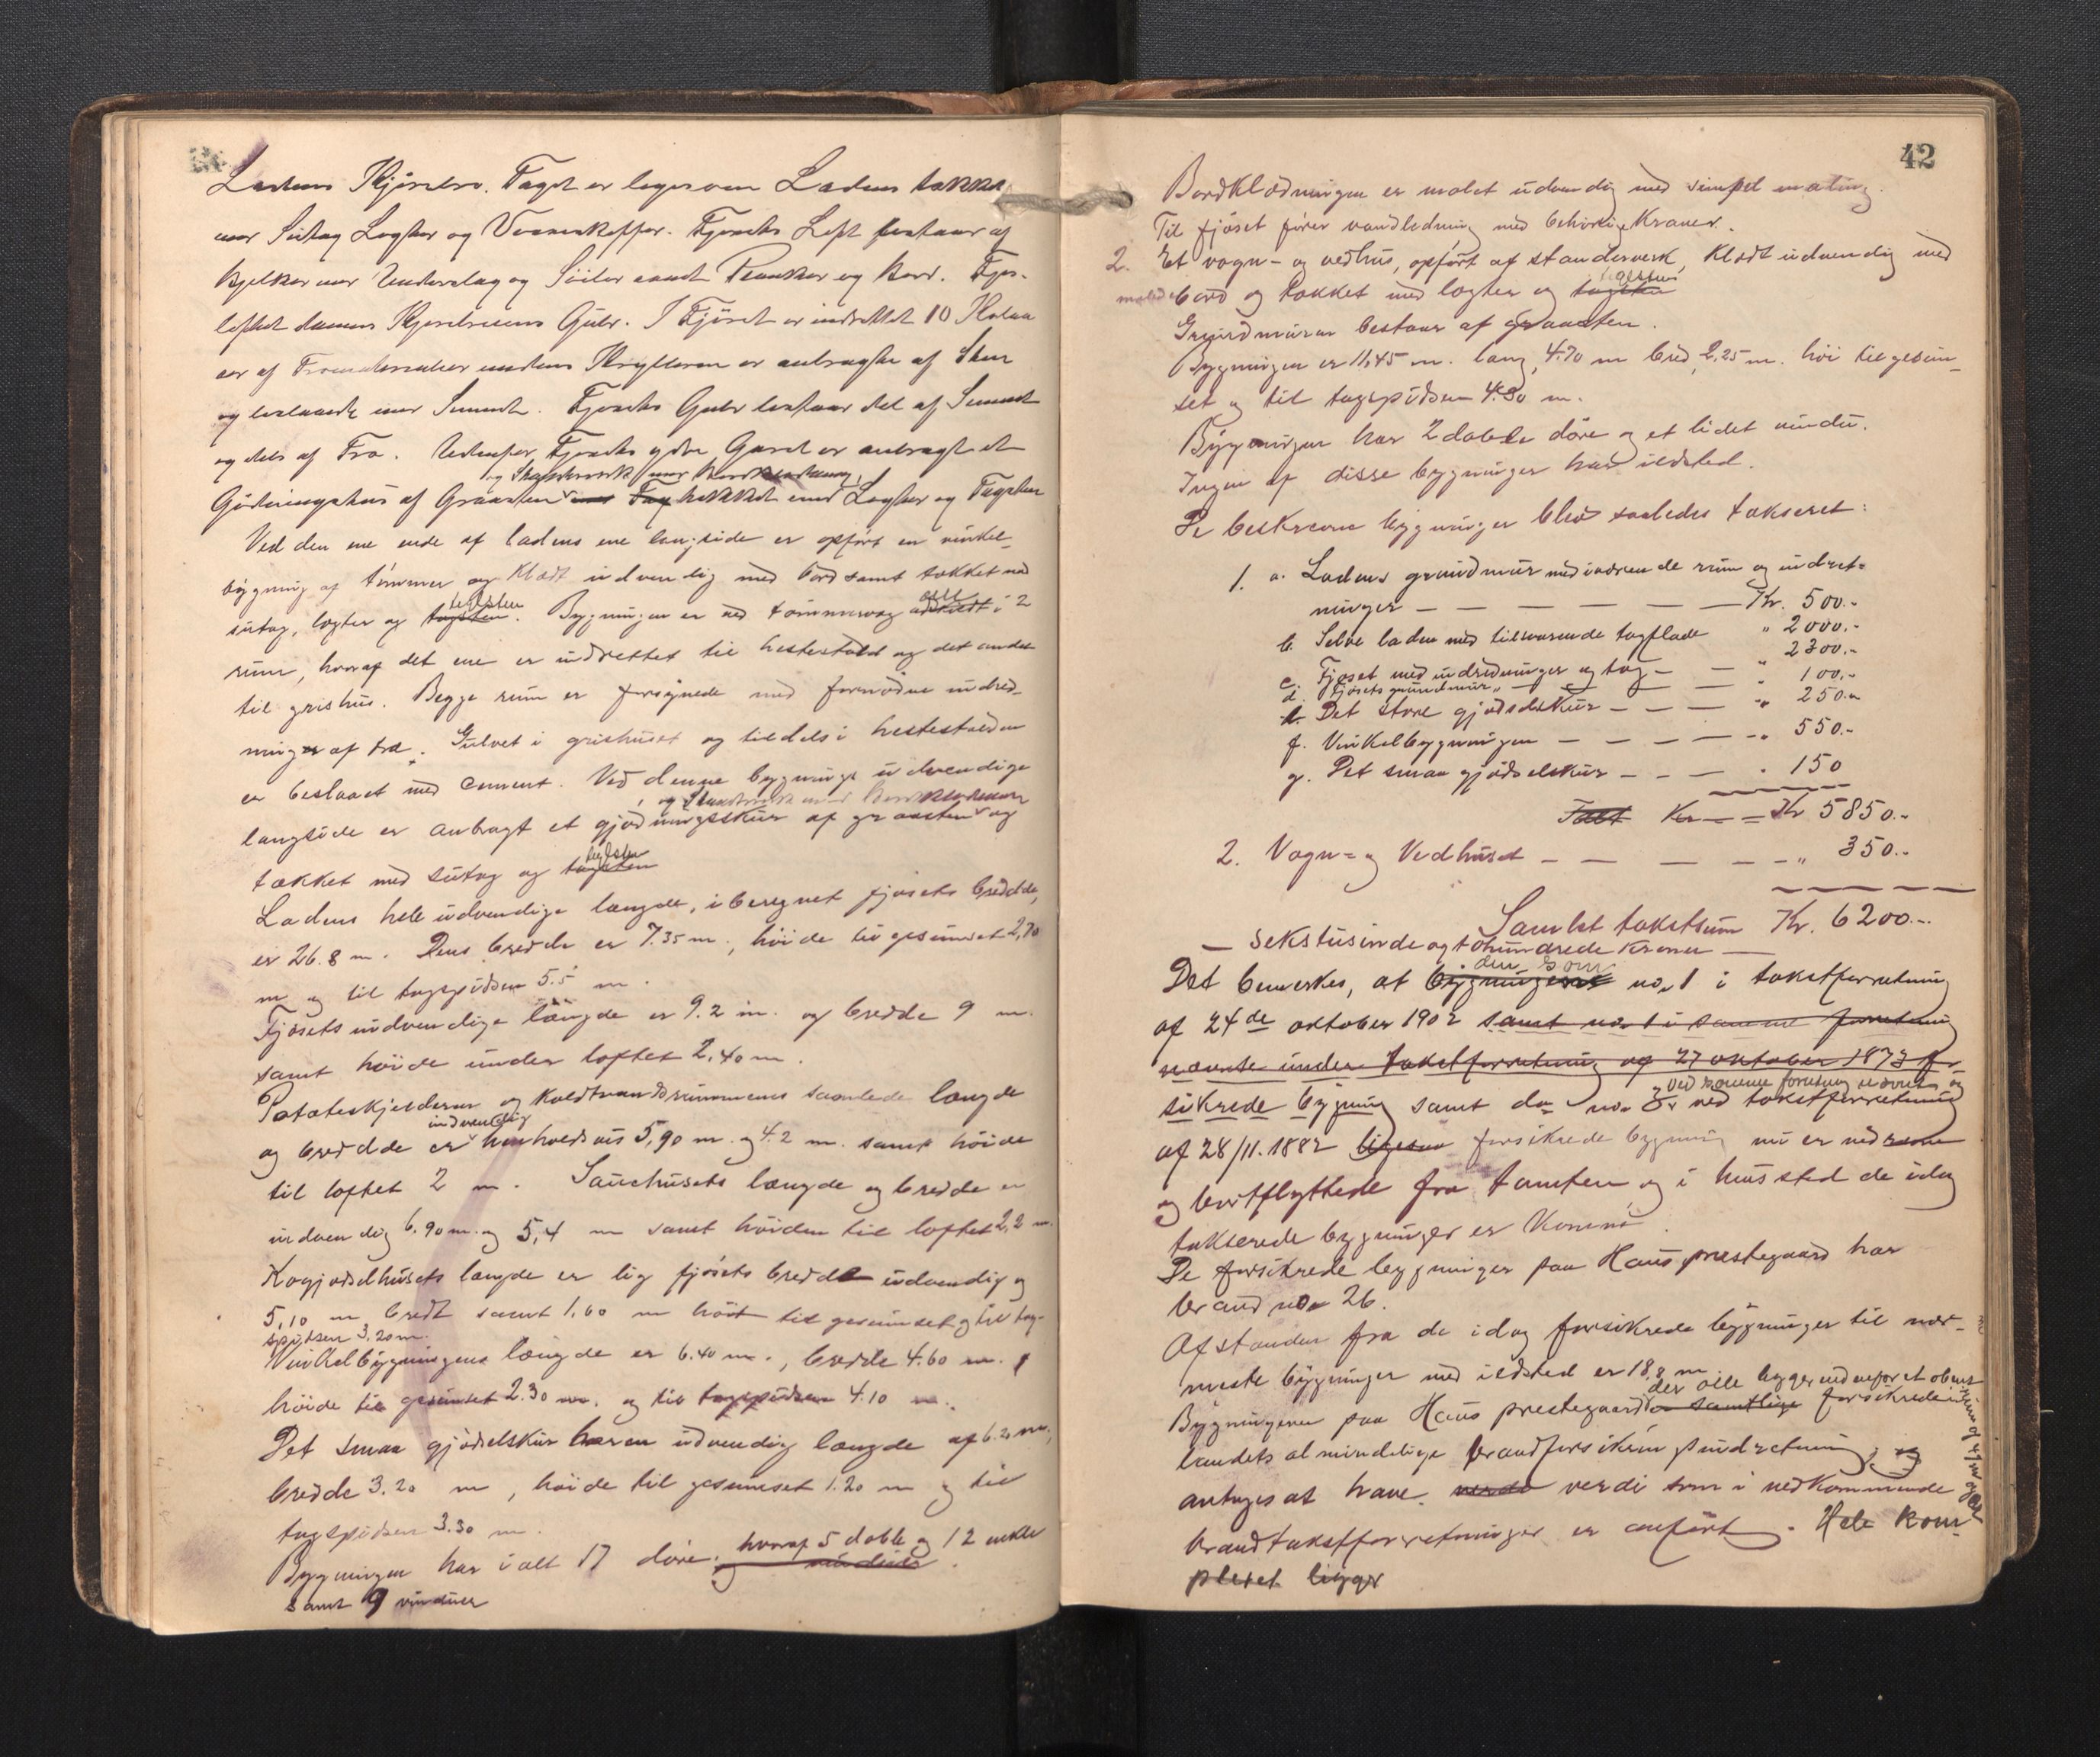 Ladens Kjørebro. Taget er ligesom Ladens tækket
med Sutag Lægter og Vooneskeffer. Fjøsets Loft bestaar af
Bjelker med Underslag og Søiler samt Planker og Bord. Fjøs-
loftet danner Kjørebroens Gulv. I Fjøset er indrettet 10 Kobaa
ser af Træmaterialer medens Krybberne er anbragte af Sten
og beslaaede med Sement. Fjøsets Gulv bestaar del af Sement
og dels af Træ. Udenfor Fjøsets ydre Gavel er anbragt et
og Standverk med Bordklædning,
Gjødningshus af Graasten med Tag tækket med Lægter og Tagsten
Ved den ene ende af ladens ene langside er opført en vinkel-
bygning af tømmer og klædt udvendig med bord samt tækket med
teglsten
sutag, lægter og tagsten. Bygningen er ved tømmervæg adskildt i 2
rum, hvoraf det ene er indrettet til hestestald og det andet
til grishus. Begge rum er forsynede med fornødne indred-
ninger af træ. Gulvet i grishuset og tildels i hestestalden
er beslaaet med cement. Ved denne bygnings udvendige
og Standverk med Bordklædning
langside er anbragt et gjødningsskur af graasten og
teglsten
tækket med sutag og tagsten
Ladens hele udvendige længde, iberegnet fjøsets bredde,
er 26.8 m. Dens bredde er 7.35 m., høide til gesimset 2,70
m og til tagspidsen 5.5 m.
Fjøsets indvendige længde er 9.2 m. og bredde 9 m.
samt høide under loftet 2,40 m.
Potateskjelderen og Koldtvandsrummenes samlede længde
indvendig
og bredde er henholdsvis 5,90 m. og 4.2 m. samt høide
til loftet 2 m. Sauehusets længde og bredde er
indvendig 6.90 m. og 5,4 m samt høiden til loftet 2,2 m.
Kogjødselhusets længde er lig fjøsets bredde udvendig og
5,10 m bredt samt 1.60 m høit til gesimset og til tag-
spidsen 3.20 m.
Vinkelbygningens længde er 6.40 m., bredde 4.60 m.
høide til gesimset 2.30 m. og til tagspidsen 4.10 m.
Det smaa gjødselskur har en udvendig længde af 6.20 m,
bredde 3.20 m, høide til gesimset 1.20 m og til
tagspidsen 3.30 m.
Bygningen har ialt 17 døre, hvoraf 5 doble og 12 enkle
og vinduer
samt 9 vinduer
42
Bordklædningen er malet udvendig med simpel maling.
Til fjøset fører vandledning med behørige Kraner.
2. Et vogn- og vedhus, opført af standerverk, klædt udvendig med
teglsten
malede bord og tækket med lægter og tagsten
Grundmuren bestaar af graasten.
Bygningen er 11,45 m. lang, 4.70 m bred, 2,25 m. høi til gesim-
set og til tagspidsen 4.30 m.
Bygningen har 2 doble døre og et lidet vindu.
Ingen af disse bygninger har ildsted.
De beskrevne bygninger blev saaledes takseret:
1. a. Ladens grundmur med indvendige rum og indret-
ninger — — — — — — Kr. 500.-
b. Selve laden med tilsvarende tagflade " 2000.-
c. Fjøset med indredninger og tag — — " 2300.-
d. Fjøsets grundmur — — — — " 100.-
e. Det store gjødselskur — — — " 250.-
f. Vinkelbygningen — — — — — " 550.-
g. Det smaa gjødselskur — — — " 150
Talt Kr — — Kr 5850.-
2. Vogn- og Vedhuset — — — — — " 350.-
Samlet takstsum Kr. 6200.-
— sekstusinde og tohundrede kroner —
den som
Det bemerkes, at bygningerne no. 1 i takstforretning
af 24de oktober 1902 samt no. 1 i samme forretning
nævnte under takstforretning af 27 oktober 1873 for-
ved samme forretning nævnte og
sikrede bygning samt de no. 8 ved takstforretning
af 28/11. 1882 ligesaa forsikrede bygning nu er nedrevne
og bortflyttede fra tomten og i hus sted de idag
takserede bygninger er kommet.
De forsikrede bygninger paa Haus prestegaard har
brand no 26.
Afstanden fra de idag forsikrede bygninger til nær-
meste bygninger med ildsted er 18,8 m.
der alle ligger nedenfor et obens
Bygningerne paa Haus prestegaard er samtlige forsikrede i
landets almindelige brandforsikringsindretning, og
antages at have verdi verdi som i vedkommende
brandtakstforretninger er anført. Hele kom-
plexet ligger